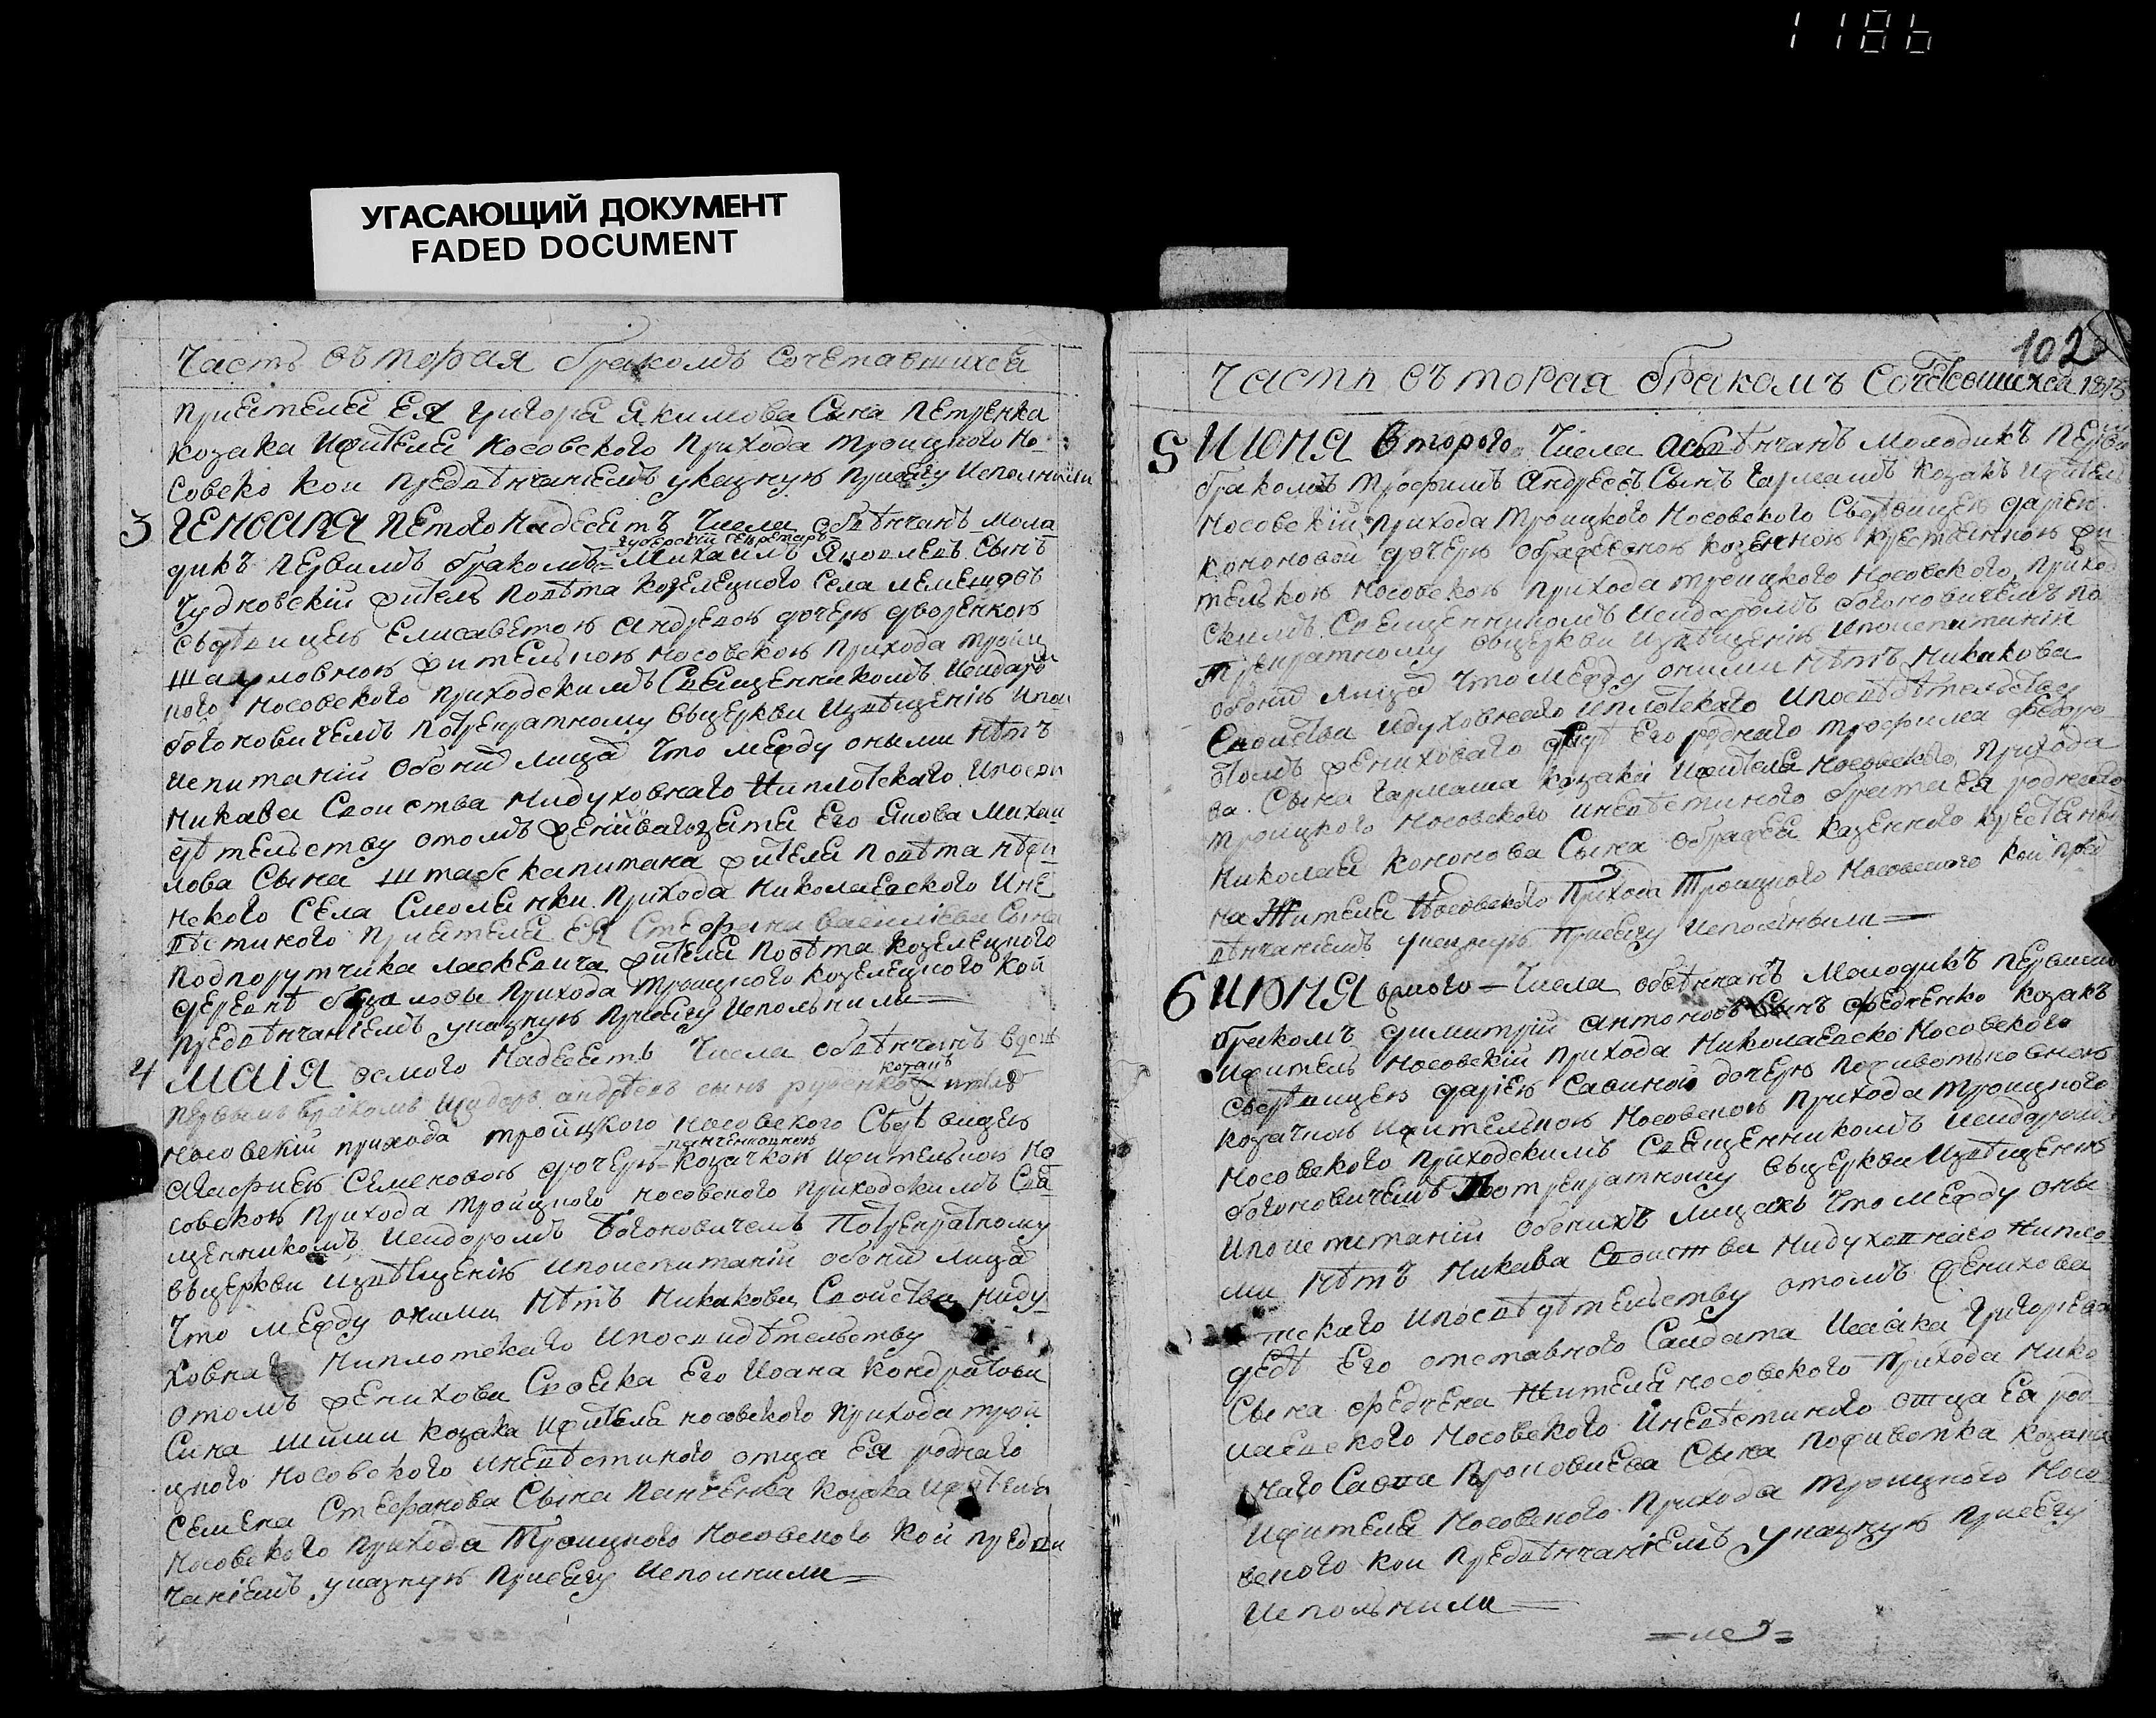 1186
УГАСАЮЩИЙ ДОКУМЕНТ
FADED DOCUMENT
Часть вторая бракомъ сочетавшихся
приятеля ея Григоря Якимова сына Петренка
козака ижителя носовского прихода троицкого но-
совско кои предвѣнчаніемъ указную присягу исполнили
3 Генваря петого надесетъ числа обвѣнчанъ мола
губерскій секретаръ
дикъ первимъ бракомъ Михаилъ Яковлевъ сынъ
Чудновскій житель повѣта козелецкого села лемешовъ
сьдѣвицею Елисаветою Андревою дочерю дворенкою
жителькою носовскою прихода троиц
кого носовского приходскимъ священникомъ Исидоро
богоновичемъ потрекратному вцеркви извѣщенію ипои
испитаній обоихъ лицъ что между оными нѣтъ
никава своиства нидуховнаго ниплотскаго ипосви
дѣтельству отомъ зятя его Якова Михаи
лова сына штабскапитана жителя повѣта нѣжи
нского села смолянки прихода николаевского ине
вѣстиного приятеля ея Стефана Василіева сына
подпорутчика Ласкевича жителя повѣта козелецкого
деревнѣ прихода троицкого козелецкого кои
предвѣнчаніемъ указную присягу испольнили
4 Маія осмого надесеть числа обвѣнчанъ
козакъ
первымъ бракомъ Исидоръ андрѣевъ сынъ руденко
носовскій прихода тройцкого носовского сьдѣвицею
панченковною
Семеновою дочерю козачкою ижителькою но
совскою прихода тройцкого носовского приходскимъ свя
щенникомъ Исидоромъ Богоновичемъ потрекратному
вьцеркви извѣщенію ипоиспитаній обоихъ лицъ
что между оними нѣтъ никакова своиства ниду
ховнаго ниплотскаго ипосвидѣтельству
отомъ женихова свояка его Иоана Кондратова
сина козака ижителя носовского прихода трои
цкого носовского иневѣстиного отца ея роднаго
Семена Стефанова сына Панченка козака ижителя
носовского прихода Троицкого носовского кои предвѣн
чаніемъ указную присягу исполнили
102
Часть вторая бракомъ сочетавшихся 1813
5 Июня второго числа обвѣнчанъ молодикъ перви
бракомъ Трофимъ Андреевъ сынъ Гармашъ козакъ ижитель
носовскій прихода Троицкого носовского сьдѣвицею дарею
кононовой дочерю казенною крестянкою жи
телькою носовскою прихода троицкого носовского приход
скимъ священникомъ Исидоромъ богоновичемъ по
трекратному вьцеркви извѣщенію ипоиспитаній
обоихъ лицъ что между оними нѣтъ никакова
своиства нидуховнаго иплотскаго ипосвѣдетельству
отомъ жениховаго его роднаго трофима федоро
ва сына Гармаша козака ижителя носовского прихода
троицкого носовского иневѣстиного брата ея роднаго
Николая Кононова сына казенного крестянi
на Жителя Носовского Прихода Троицкого Носовского кои пред
вѣнчаніемъ указную присягу исполнили
6 Июня числа обвѣнчанъ молодикъ первимъ
бракомъ димитрій антоновъ сынъ федченко козакъ
ижитель носовскій прихода Николаевско Носовского
сьдѣвицею дарею Савиною дочерю
козачкою ижителькою Носовскою прихода троицкого
Носовского приходскимъ священникомъ Исидоромъ
богоновичемъ потрекратному вьцеркви извѣщенію
ипоиспитаній обоихъ лицахъ что между оны
ми нѣтъ никава своиства нидуховнаго нипло
тскаго ипосвѣдѣтельству отомъ женихова
дедѣ его отставного Салдата Исаака Григорева
сына федчена Жителя носовского Прихода Нико
лаевского Носовского иневѣстиного отца ея род
наго Савва сына козака
ижителя Носовского Прихода Троицкого Носо
вского кои предвѣнчаніемъ указную присягу
испольнили